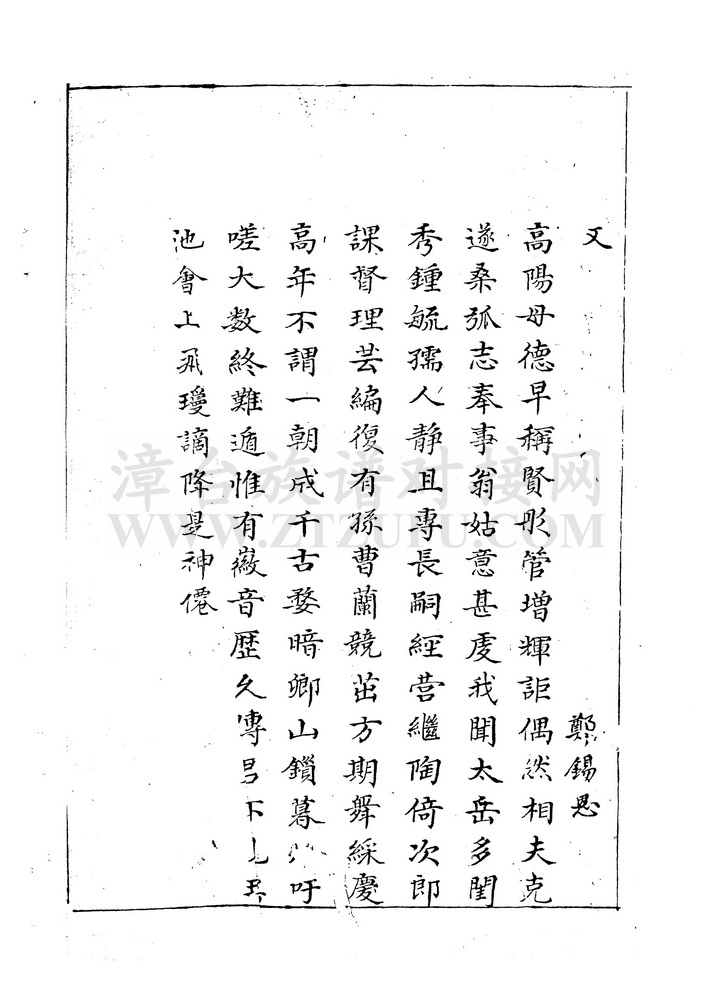 又
鄭錫恩
高陽母德早稱賢彤管增輝詎偶然相夫克
遂桑弧志奉事翁姑意甚虔我聞太岳多閨
秀鍾毓孺人静且專長嗣經营繼陶倚次郎
課督理芸編復有孫曹蘭競茁方期舞綵慶
高年不謂一朝成千古婺暗鄉山鎖暮吁
嗟大数終難遁惟有徽音歷久傳
池會上飛瓊謫降是神僊
漳台族谱对接网
WWW.ZTZUPU.COM